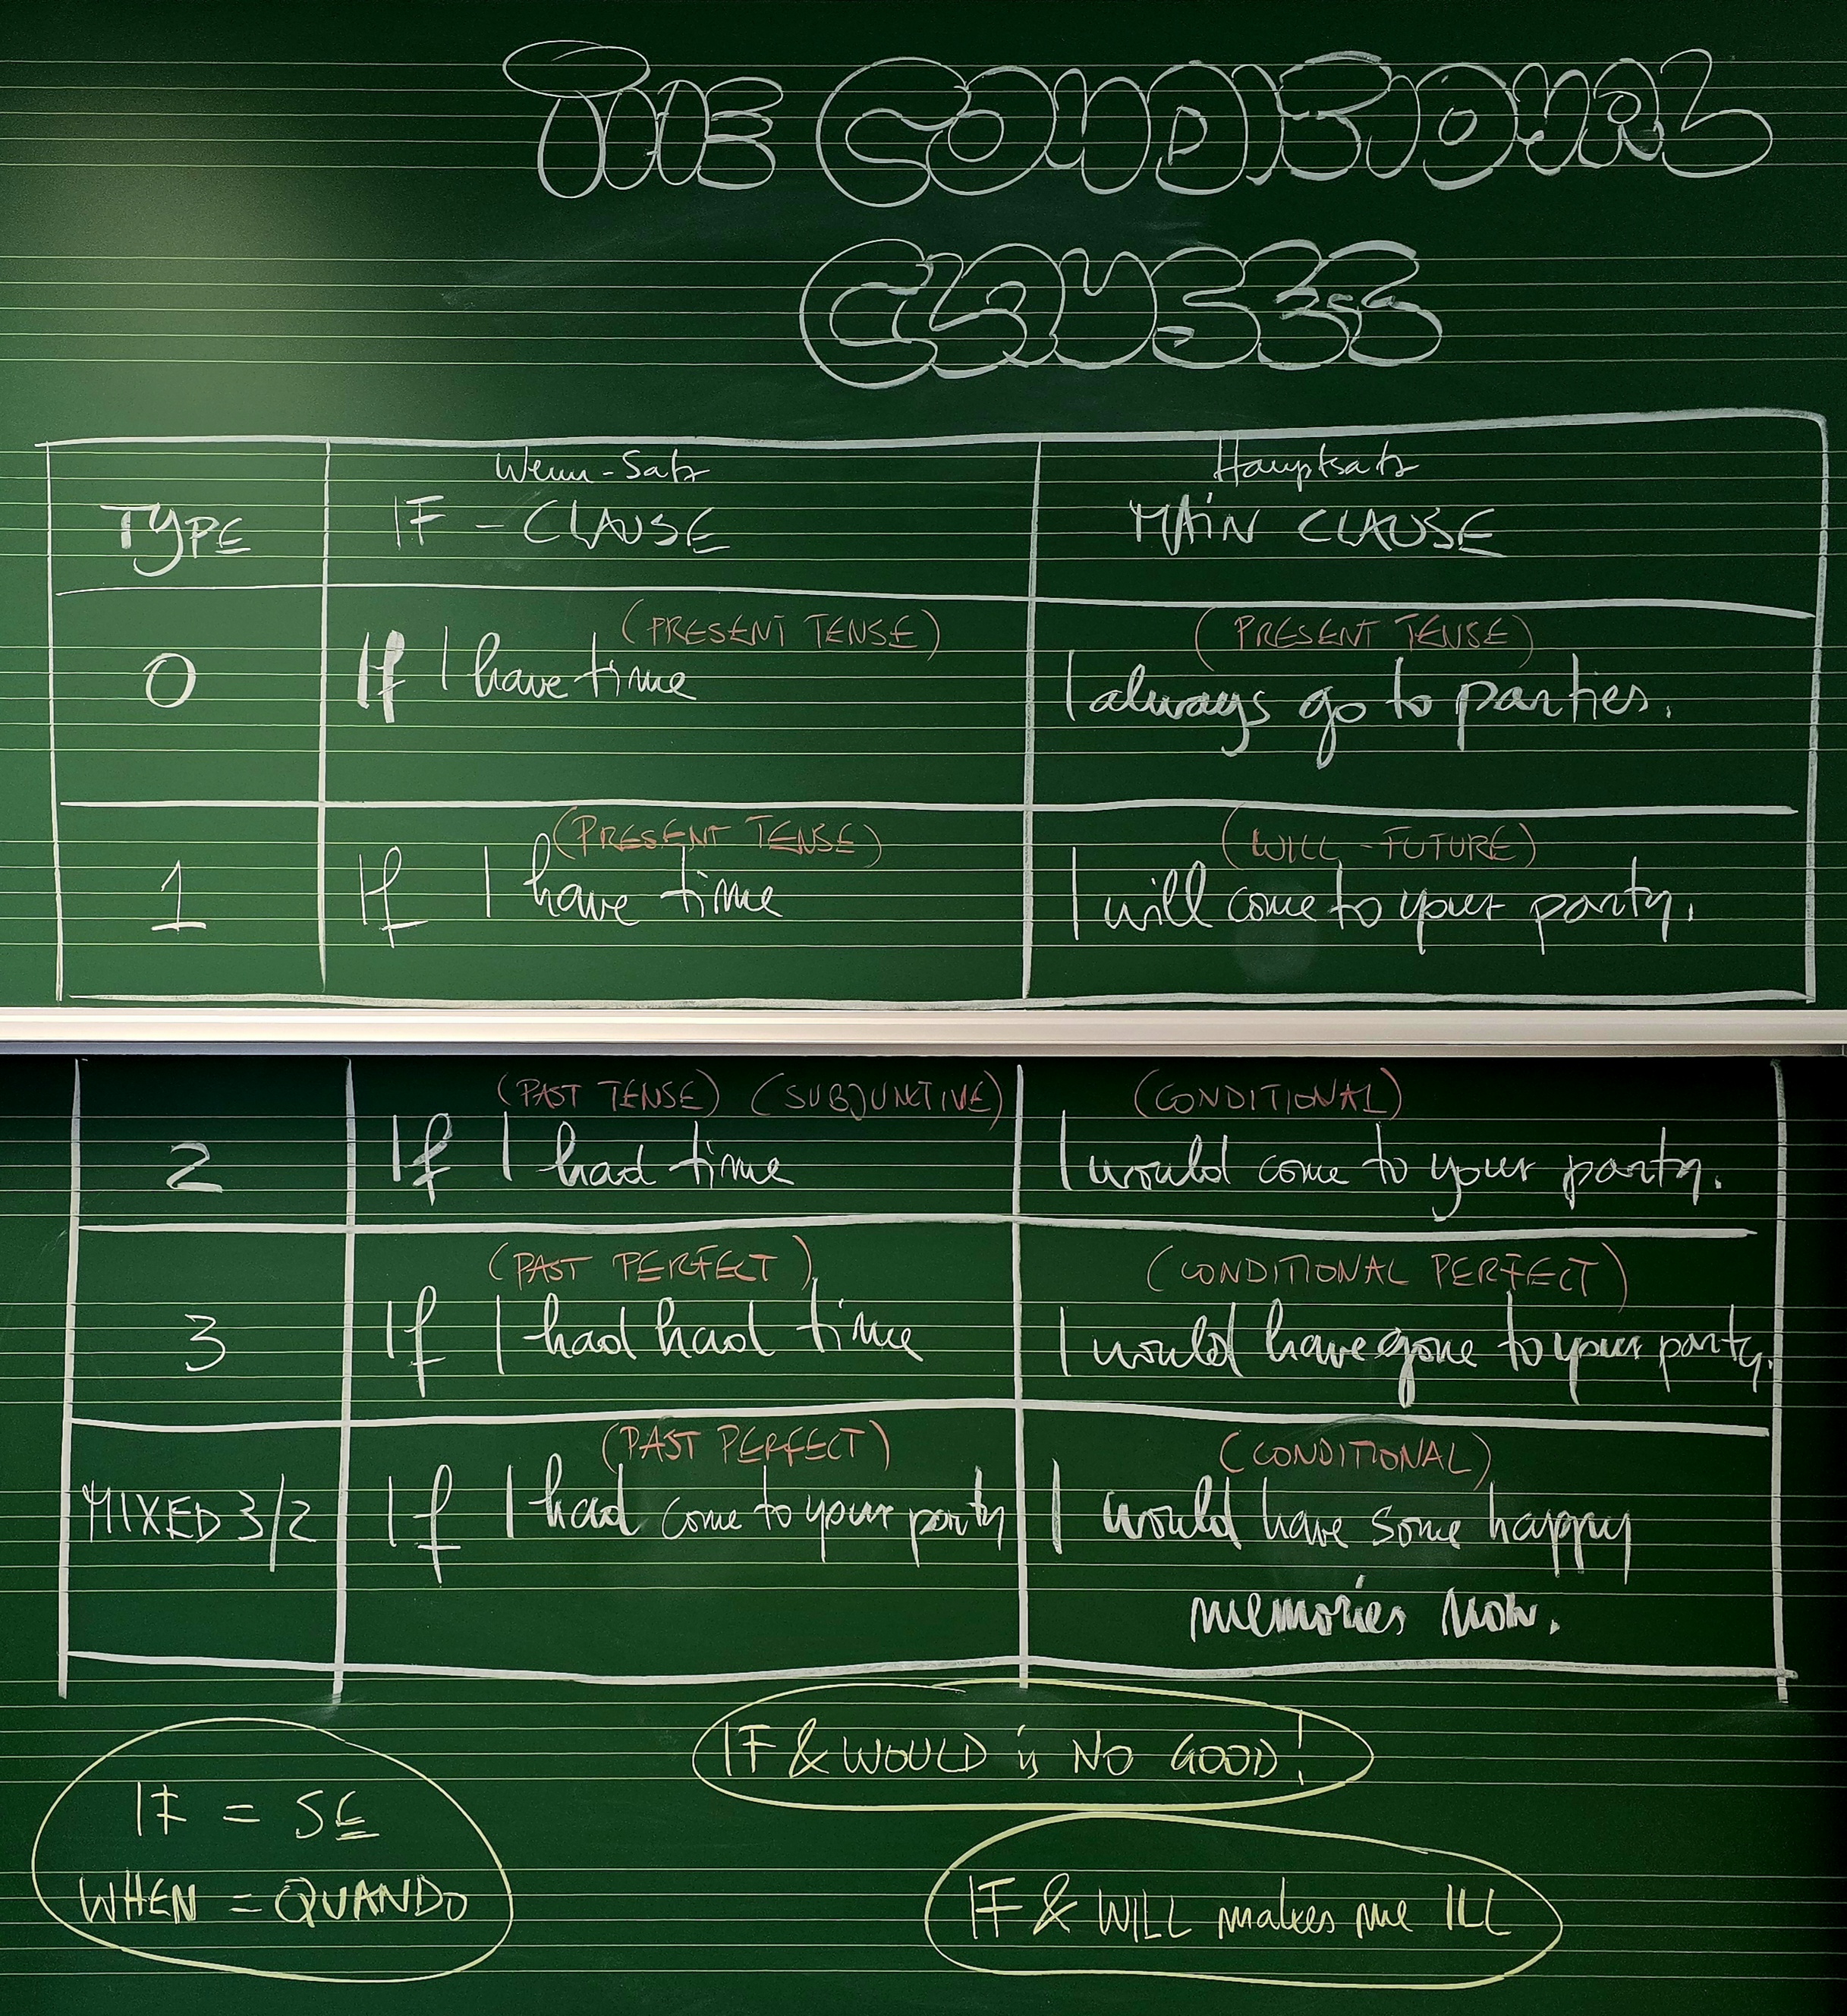 THE CONDITIONAL
CLAUSES
Wenn-Satz
Hauptsatz
TYPE
IF - CLAUSE
MAIN CLAUSE
(PRESENT TENSE)
(PRESENT TENSE)
0
If I have time
I always go to parties.
(PRESENT TENSE)
(WILL-FUTURE)
1
If I have time
I will come to your party.
(PAST TENSE) (SUBJUNCTIVE)
(CONDITIONAL)
2
If I had time
I would come to your party.
(PAST PERFECT)
(CONDITIONAL PERFECT)
3
If I had had time
I would have gone to your party.
(PAST PERFECT)
(CONDITIONAL)
MIXED 3/2
If I had come to your party
I would have some happy
memories now.
IF & WOULD is NO GOOD!
IF = SE
WHEN = QUANDO
IF & WILL makes me ILL